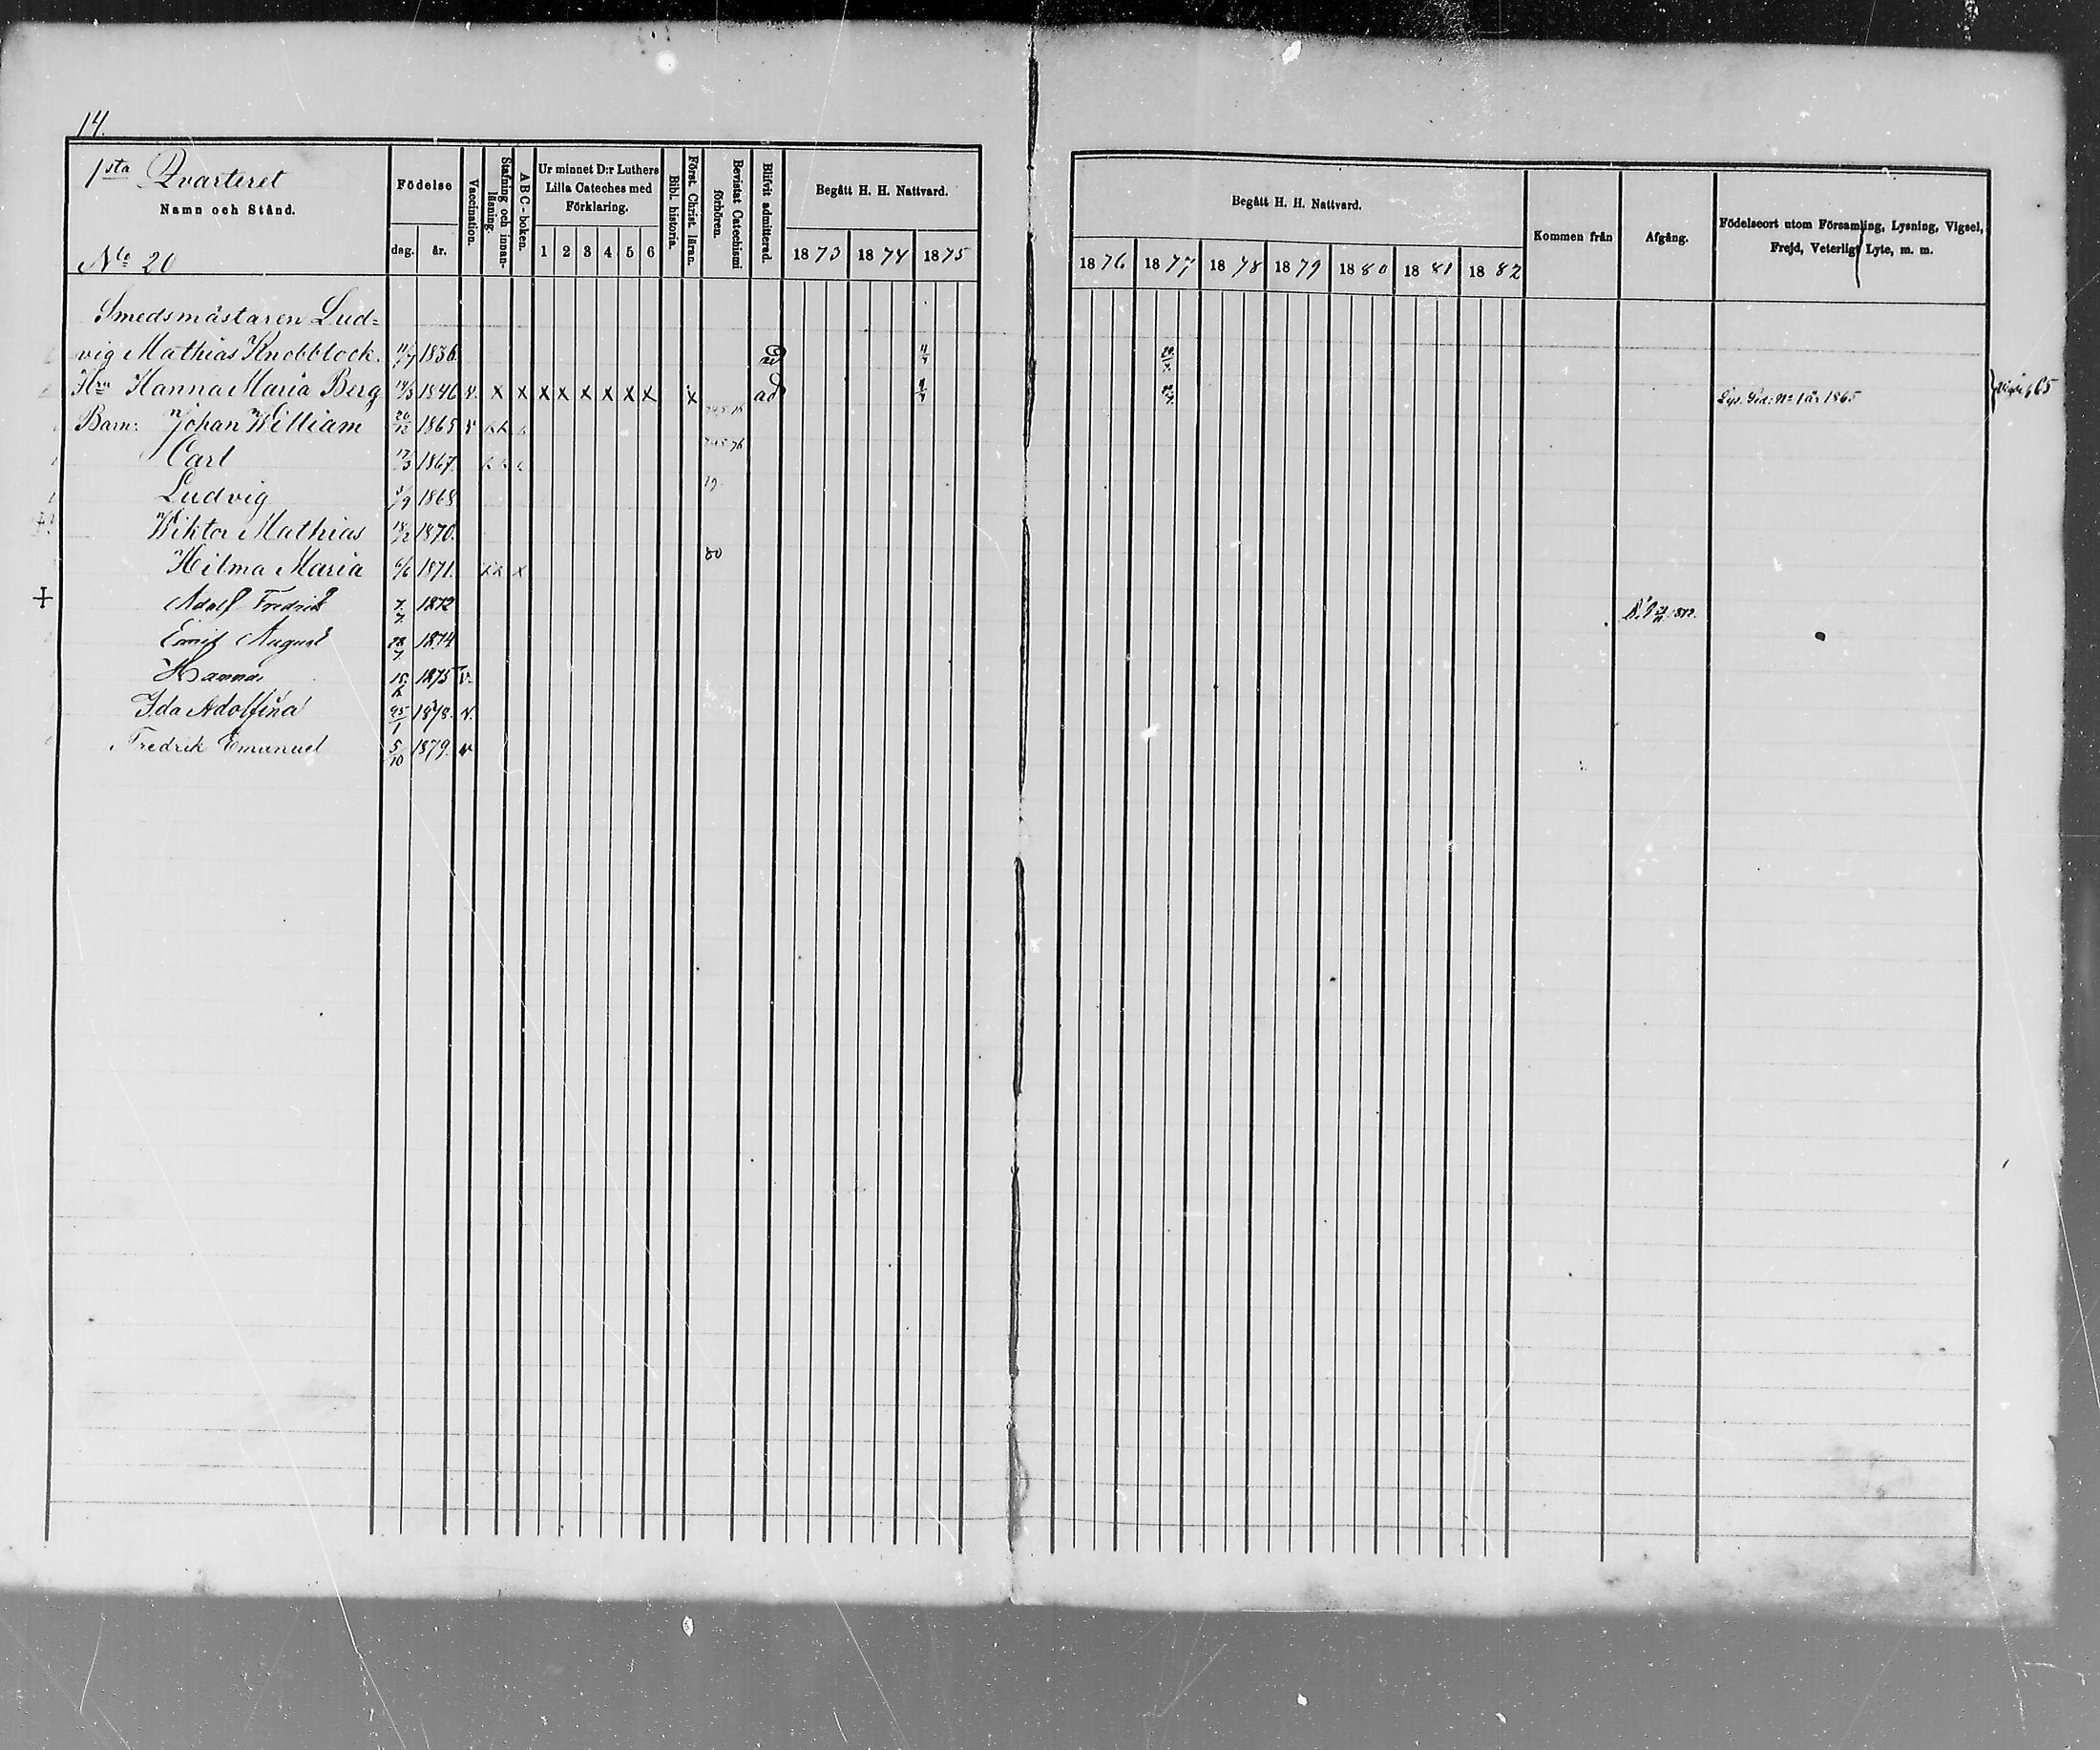 14.
1sta Qvarteret
Namn och Stånd.
No 20
Födelse
dag. år.
Vaccination.
Stafning och innan-
läsning.
A B C - boken.
Ur minnet D:r Luthers
Lilla Cateches med
Förklaring.
1 2 3 4 5 6
Bibl. historia.
Först. Christ. läran.
Bevistat Catechismi
förhören.
Blifvit admitterad.
Begått H. H. Nattvard.
1873 1874 1875
Begått H. H. Nattvard.
1876 1877 1878 1879 1880 1881 1882
Kommen från
Afgång.
Födelseort utom Församling, Lysning, Vigsel,
Frejd, Veterligt Lyte, m. m.
Smedsmästaren Lud=
vig Mathias Knobblock. 11/7 1836.
Hru Hanna Maria Berg 14/3 1846 v. x x x x x x x x x ad Lys. Sed: No 1 år 1865
Barn: Johan William 20/12 1865 v
Carl 17/3 1867.
Ludvig /9 1868 79
Wiktor Mathias 18/2 1870.
Hilma Maria 6/6 1871. x 80
Adolf Fredrik 7/7 1872
Emil August 28/7 1874
Hanna 15 1875 v.
Ida Adolfina 25/1 1878. v.
Fredrik Emanuel 5/10 1879. v